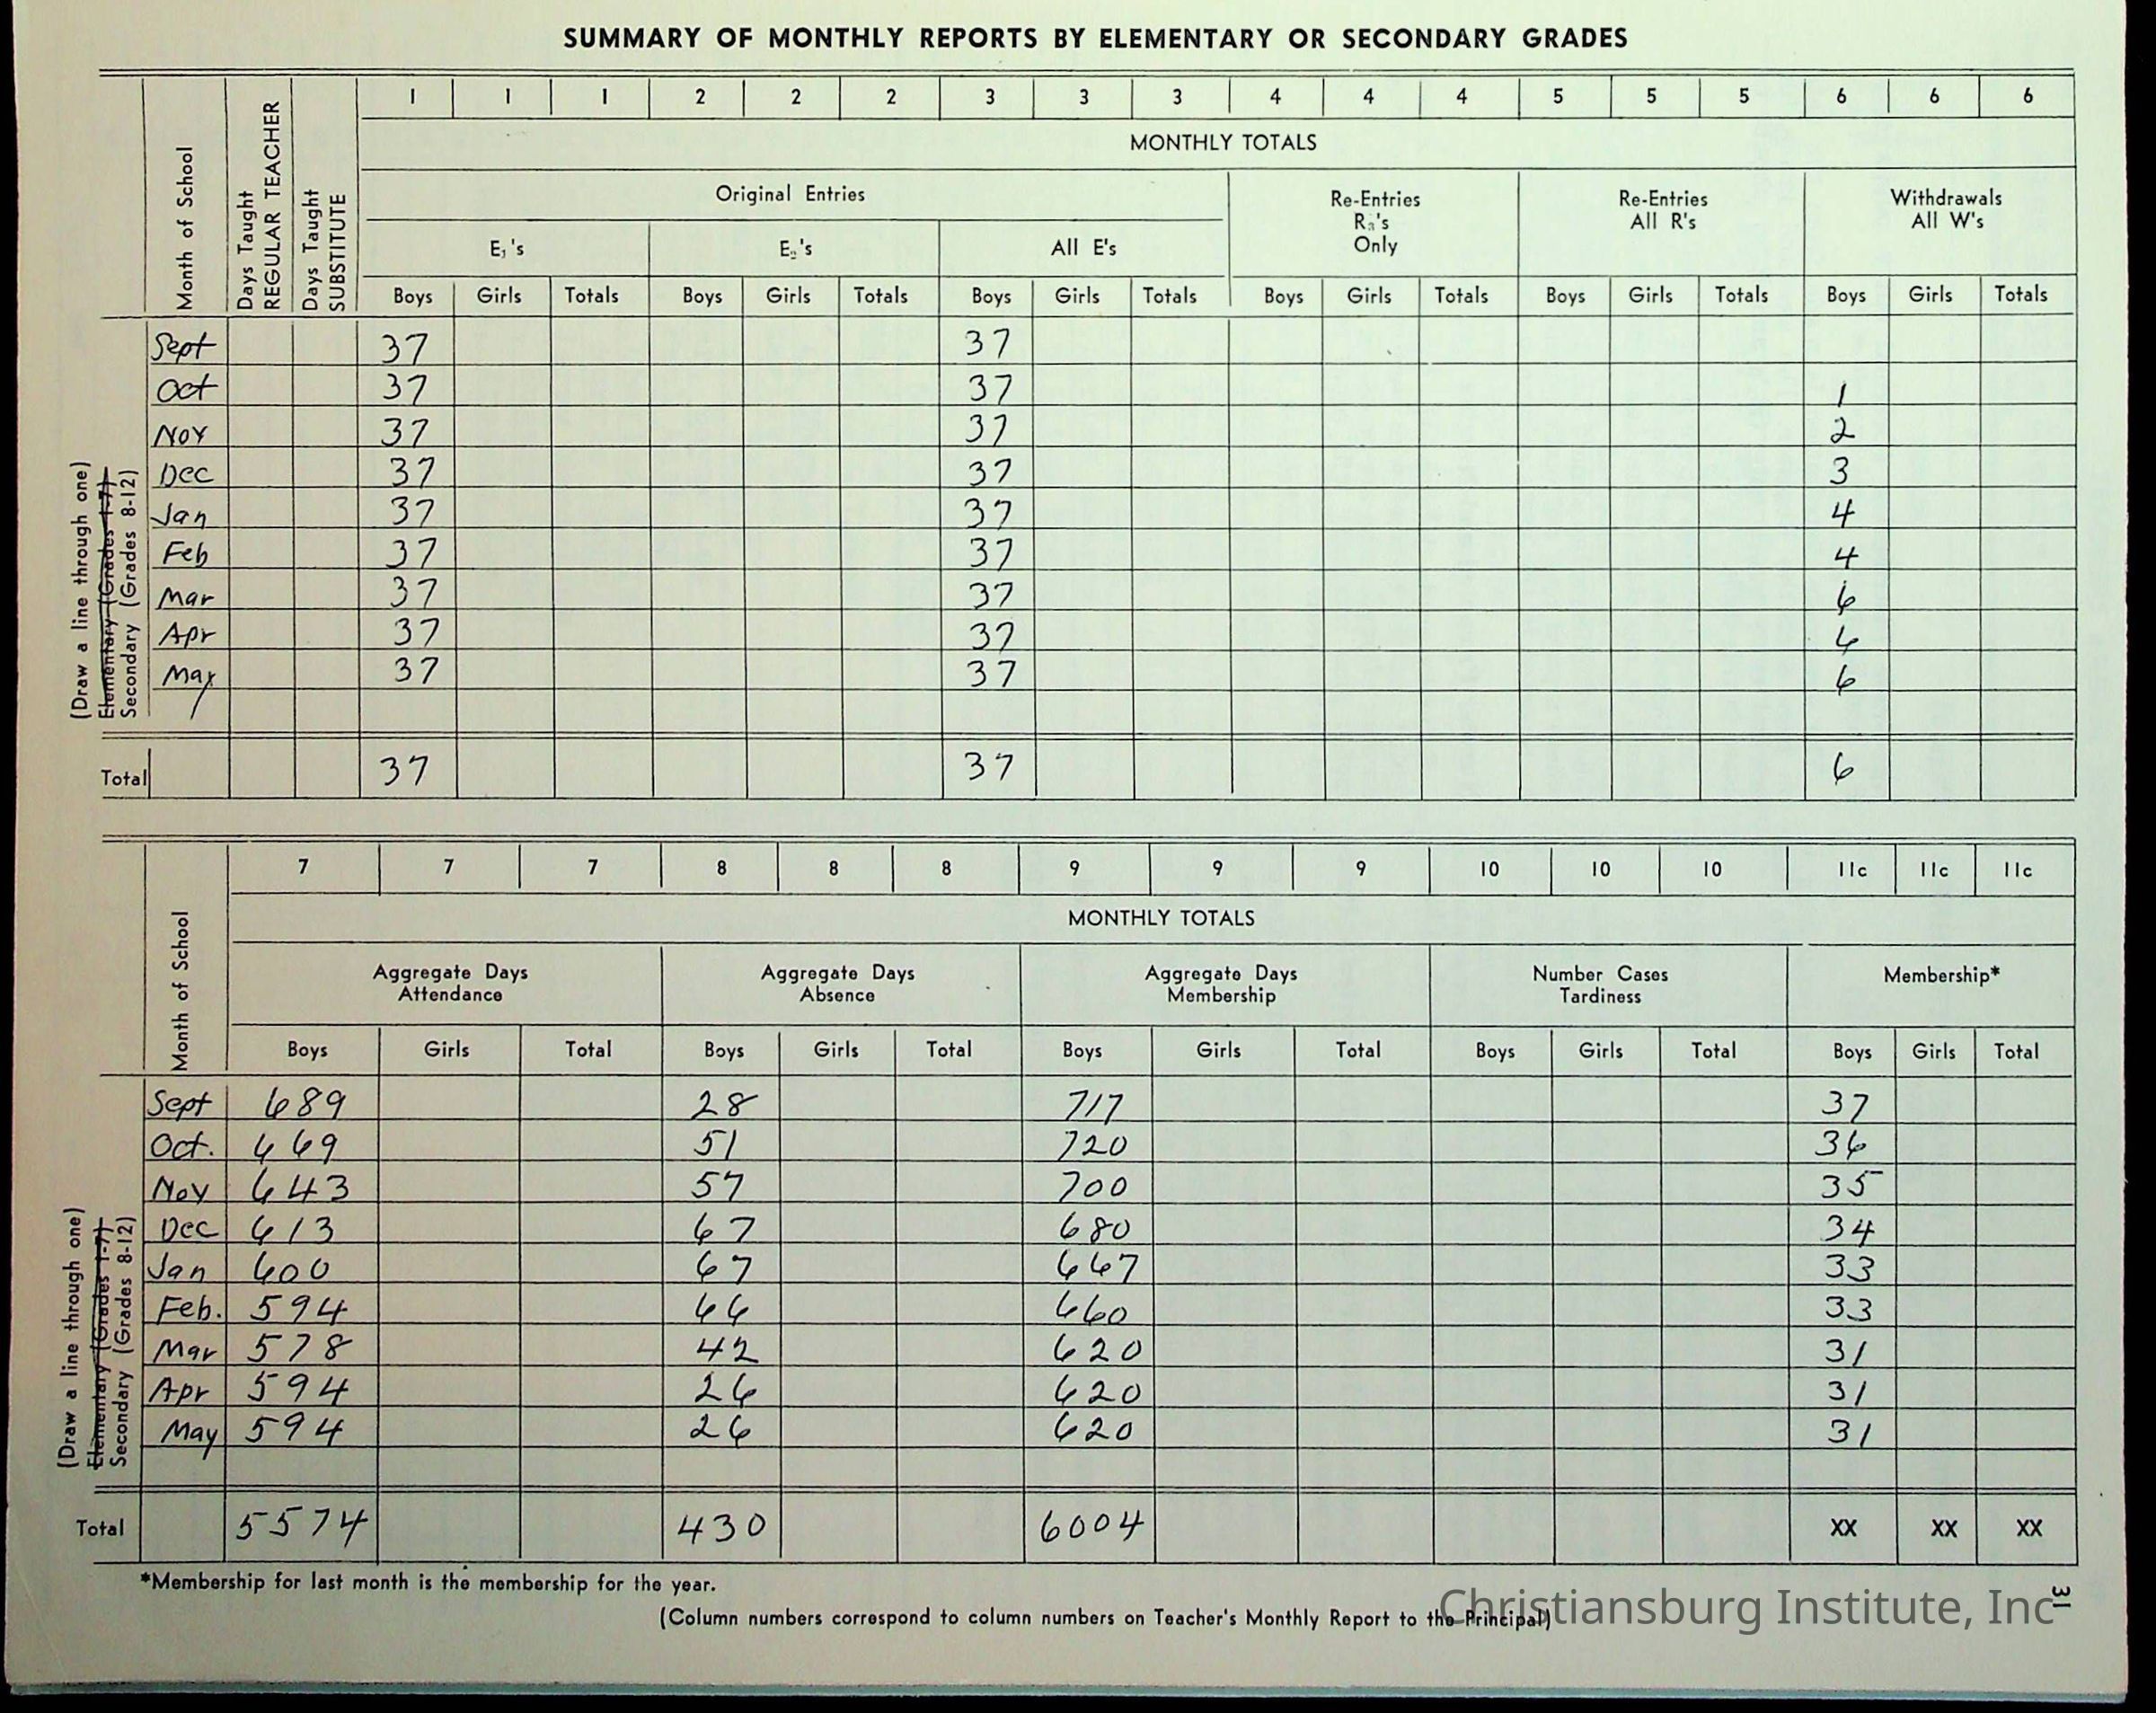 SUMMARY OF MONTHLY REPORTS BY ELEMENTARY OR SECONDARY GRADES
1 1 1 2 2 2 3 3 3 4 4 4 5 5 5 6 6 6
MONTHLY TOTALS
Month of School
Days Taught REGULAR TEACHER
Days Taught SUBSTITUTE
Original Entries
Re-Entries R₃'s Only
Re-Entries All R's
Withdrawals All W's
E₁'s E₂'s All E's
Boys Girls Totals Boys Girls Totals Boys Girls Totals Boys Girls Totals Boys Girls Totals Boys Girls Totals
(Draw a line through one)
Elementary (Grades 1-7)
Secondary (Grades 8-12)
Sept 37 37
Oct 37 37 1
Nov 37 37 2
Dec 37 37 3
Jan 37 37 4
Feb 37 37 4
Mar 37 37 6
Apr 37 37 6
May 37 37 6
Total 37 37 6
7 7 7 8 8 8 9 9 9 10 10 10 11c 11c 11c
MONTHLY TOTALS
Month of School
Aggregate Days Attendance
Aggregate Days Absence
Aggregate Days Membership
Number Cases Tardiness
Membership*
Boys Girls Total Boys Girls Total Boys Girls Total Boys Girls Total Boys Girls Total
(Draw a line through one)
Elementary (Grades 1-7)
Secondary (Grades 8-12)
Sept 689 28 717 37
Oct. 669 51 720 36
Nov 643 57 700 35
Dec 613 67 680 34
Jan 600 67 667 33
Feb. 594 66 660 33
Mar 578 42 620 31
Apr 594 26 620 31
May 594 26 620 31
Total 5574 430 6004 XX XX XX
*Membership for last month is the membership for the year.
(Column numbers correspond to column numbers on Teacher's Monthly Report to the Principal)
31
Christiansburg Institute, Inc